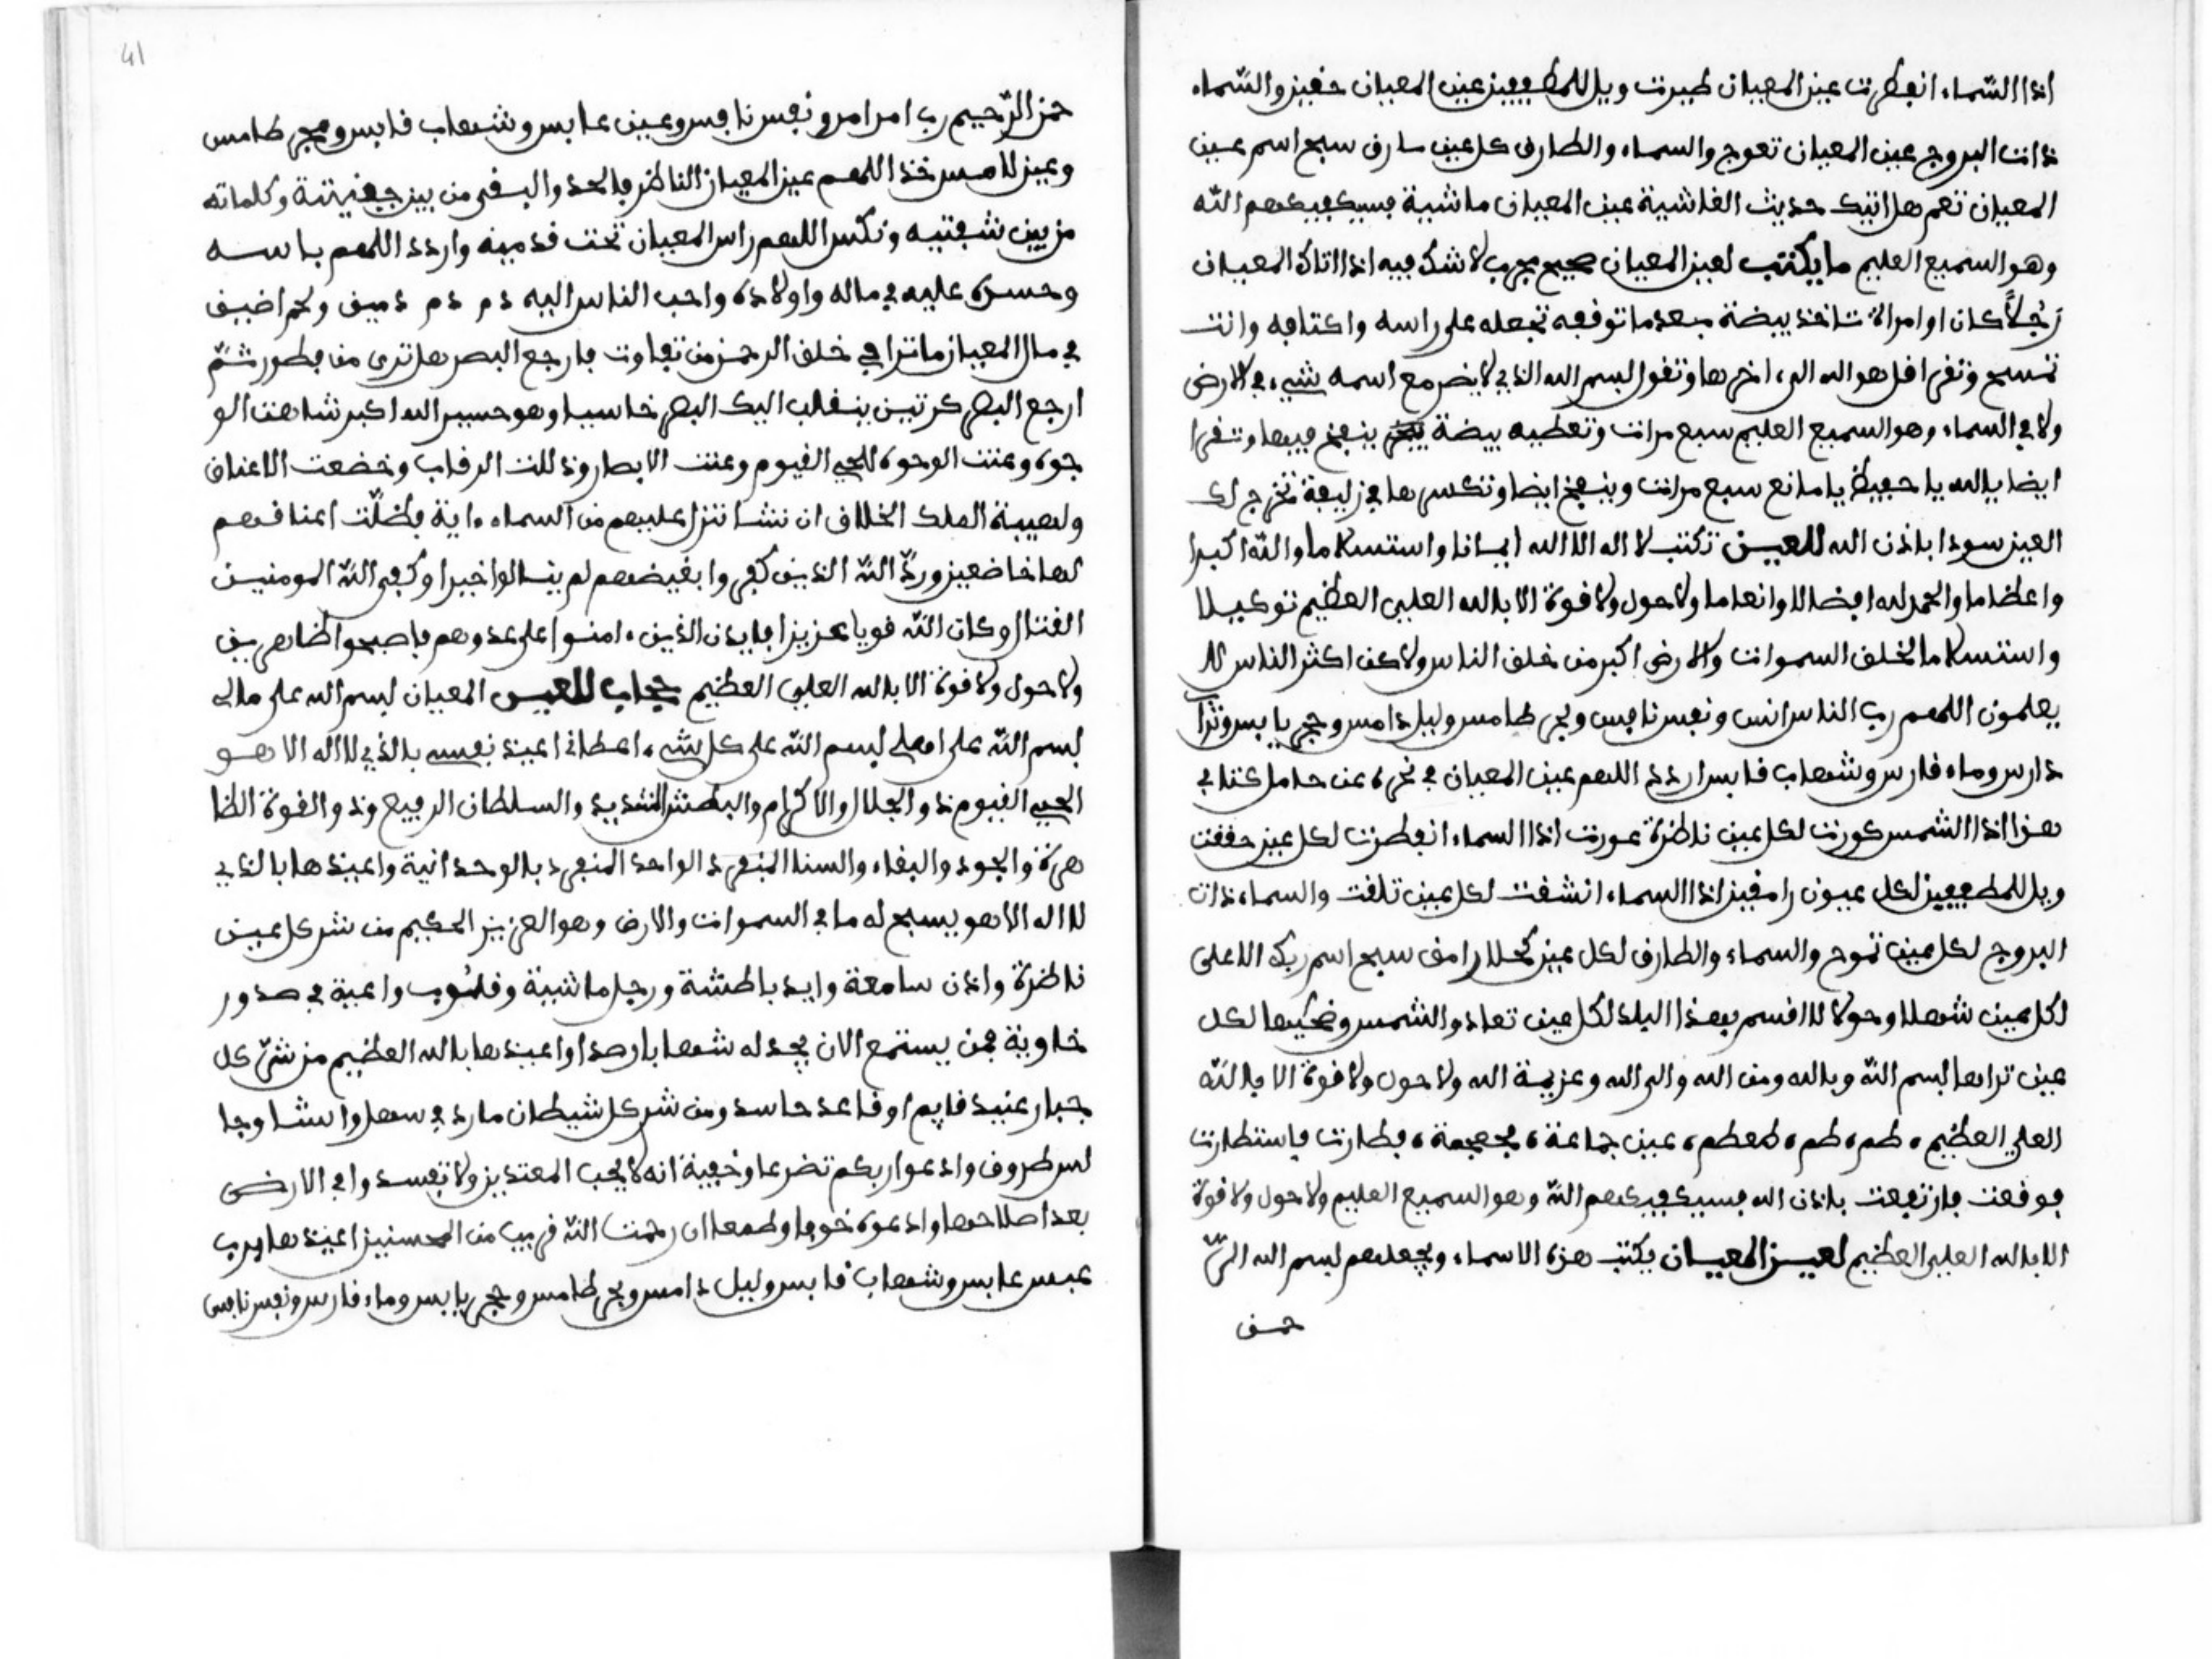 اذا السّماء انفطرت عين المعيان طيرت ويل للمطففين عين المعيان حفين والسّماء
ذات البروج عين المعيان تعوج والسماء والطارق كل عين سارق سبح اسم عين
المعيان تعم هل اتيك حديث الغاشية عين المعيان ماشية فسيكفيكهم الله
وهو السميع العليم ما يكتب لعين المعيان صحيح مجرب لا شك فيه اذا اتاك المعيان
رَجُلاً كان او امراة تاخذ بيضة بعد ما توقفه تجعله على راسه واكتافه وانت
تمسح وتقرا قل هو الله الى اخرها وتقول بسم الله الذي لا يضر مع اسمه شيء في الارض
ولا في السماء وهو السميع العليم سبع مرات وتعطيه بيضة ينفخ فيها وتقرا
ايضا يا الله يا حفيظ يا مانع سبع مرات وينفخ ايضا وتكسرها في زليفة تخرج لك
العين سودا باذن الله للعين تكتب لا اله الا الله ايمانا واستسلاما والله اكبر
واعظاما والحمد لله افضالا وانعاما ولا حول ولا قوة الا بالله العلي العظيم توكيلا
واستسلاما لخلق السموات والارض اكبر من خلق الناس ولاكن اكثر الناس لا
يعلمون اللهم رب الناس انس ونفس نافس وبحر طامس وليل دامس وحجر يابس وتراب
دارس وماء فارس وشهاب قابس اردد اللهم عين المعيان في نحره عن حامل كتابي
هذا اذا الشمس كورت لكل عين ناظرة عورت اذا السماء انفطرت لكل عين حققت
ويل للمطففين لكل عيون رامقين اذا السماء انشقت لكل عين تلفت والسماء ذات
البروج لكل عين تموج والسماء والطارق لكل عين كحلا رامق سبح اسم ربك الاعلى
لكل عين شهلا وحولا لا اقسم بهذا البلد لكل عين تعاد والشمس وضحيها لكل
عين تراها بسم الله وبالله ومن الله والى الله وعزيمة الله ولا حول ولا قوة الا بالله
العلي العظيم طم طم طمطم عين جماعة مجمجمة فطارت فاستطارت
فوقعت فارتفعت باذن الله فسيكفيكهم الله وهو السميع العليم ولا حول ولا قوة
الا بالله العلي العظيم لعين المعيان يكتب هذه الاسماء ويجعلهم بسم الله الرّ
حمن
41
حمن الرّحيم رب امر امر ونفس نافس وعين عابس وشهاب قابس وحجر طامس
وعين لامس خذ اللهم عين المعيان الناظر بالحد والبسفر من بين جفنيه وكلماته
من بين شفتيه ونكس اللهم راس المعيان تحت قدميه واردد اللهم باسه
وحسره عليه في ماله واولاده واحب الناس اليه دم دم دميق ولحم اضيق
في مال المعيان ما ترا في خلق الرحمن من تفاوت فارجع البصر هل ترى من فطور ثمّ
ارجع البصر كرتين ينقلب اليك البصر خاسيا وهو حسير الله اكبر شاهت الو
جوه وعنت الوجوه للحي القيوم وعنت الابصار وذللت الرقاب وخضعت الاعناق
ولهيبة الملك الخلاق ان نشا ننزل عليهم من السماء ءاية فظلّت اعناقهم
لها خاضعين وردّ الله الذين كفروا بغيضهم لم ينالوا خيرا وكفى الله المومنين
القتال وكان الله قويا عزيزا فايدن الذين ءامنوا على عدوهم فاصبحوا ظاهرين
ولا حول ولا قوة الا بالله العلي العظيم حجاب للعين المعيان بسم الله على مالي
بسم الله على اهلي بسم الله على كل شيء اعطاني اعيذ نفسي بالذي لا اله الا هو
الحي القيوم ذو الجلال والاكرام والبطش الشديد والسلطان الرفيع وذو القوة الظا
هرة والجود والبقاء والسنا المنفرد الواحد المنفرد بالوحدانية واعيذها بالذي
لا اله الا هو يسبح له ما في السموات والارض وهو العزيز الحكيم من شر كل عين
ناظرة واذن سامعة وايد باطشة ورجل ماشية وقلوب واعية في صدور
خاوية فمن يستمع الان يجد له شهابا رصدا واعيذها بالله العظيم من شرّ كل
جبار عنيد قايم او قاعد حاسد ومن شر كل شيطان مارد في سهل واشاوجا
لس طروق وادعوا ربكم تضرعا وخفية انه لا يحب المعتدين ولا تفسدوا في الارض
بعد اصلاحها وادعوه خوفا وطمعا ان رحمت الله قريب من المحسنين اعيذها برب
عبس عابس وشهاب قابس وليل دامس وبحر طامس وحجر يابس وماء فارس ونفس نافس